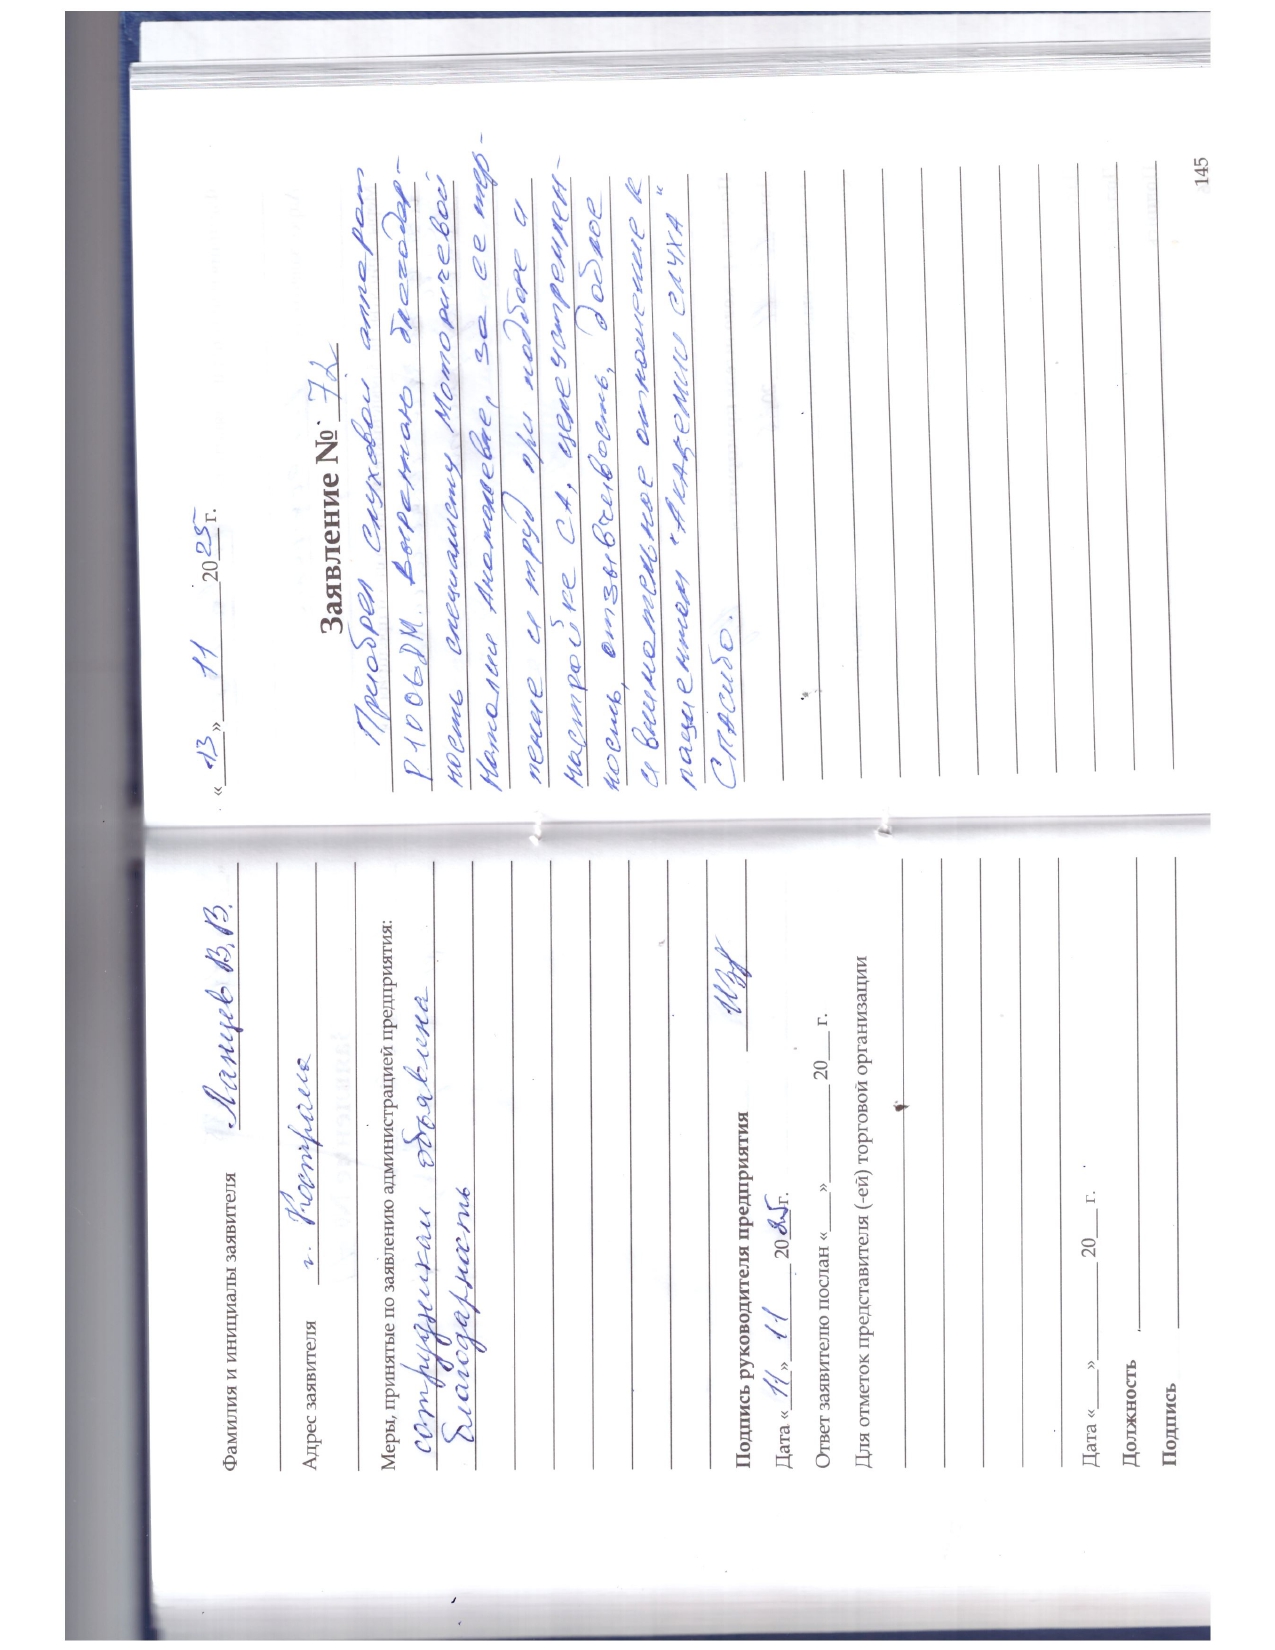 Фамилия и инициалы заявителя Ланцев В.В.
Адрес заявителя г. Кострома
Меры, принятые по заявлению администрацией предприятия:
сотрудникам объявлена
благодарность
Подпись руководителя предприятия
Дата «11» 11 2025г.
Ответ заявителю послан «___»________ 20___ г.
Для отметок представителя (-ей) торговой организации
Дата «___»________ 20___ г.
Должность
Подпись
«13» 11 2025г.
Заявление № 72
Приобрел слуховой аппарат
Выражаю благодар-
ность специалисту Моторичевой
Наталие Анатольевне, за ее тер-
пение и труд при подборе и
настройке СА, целеустремлен-
ность, отзывчивость, доброе
и внимательное отношение к
пациентам "Академии слуха"
Спасибо.
145